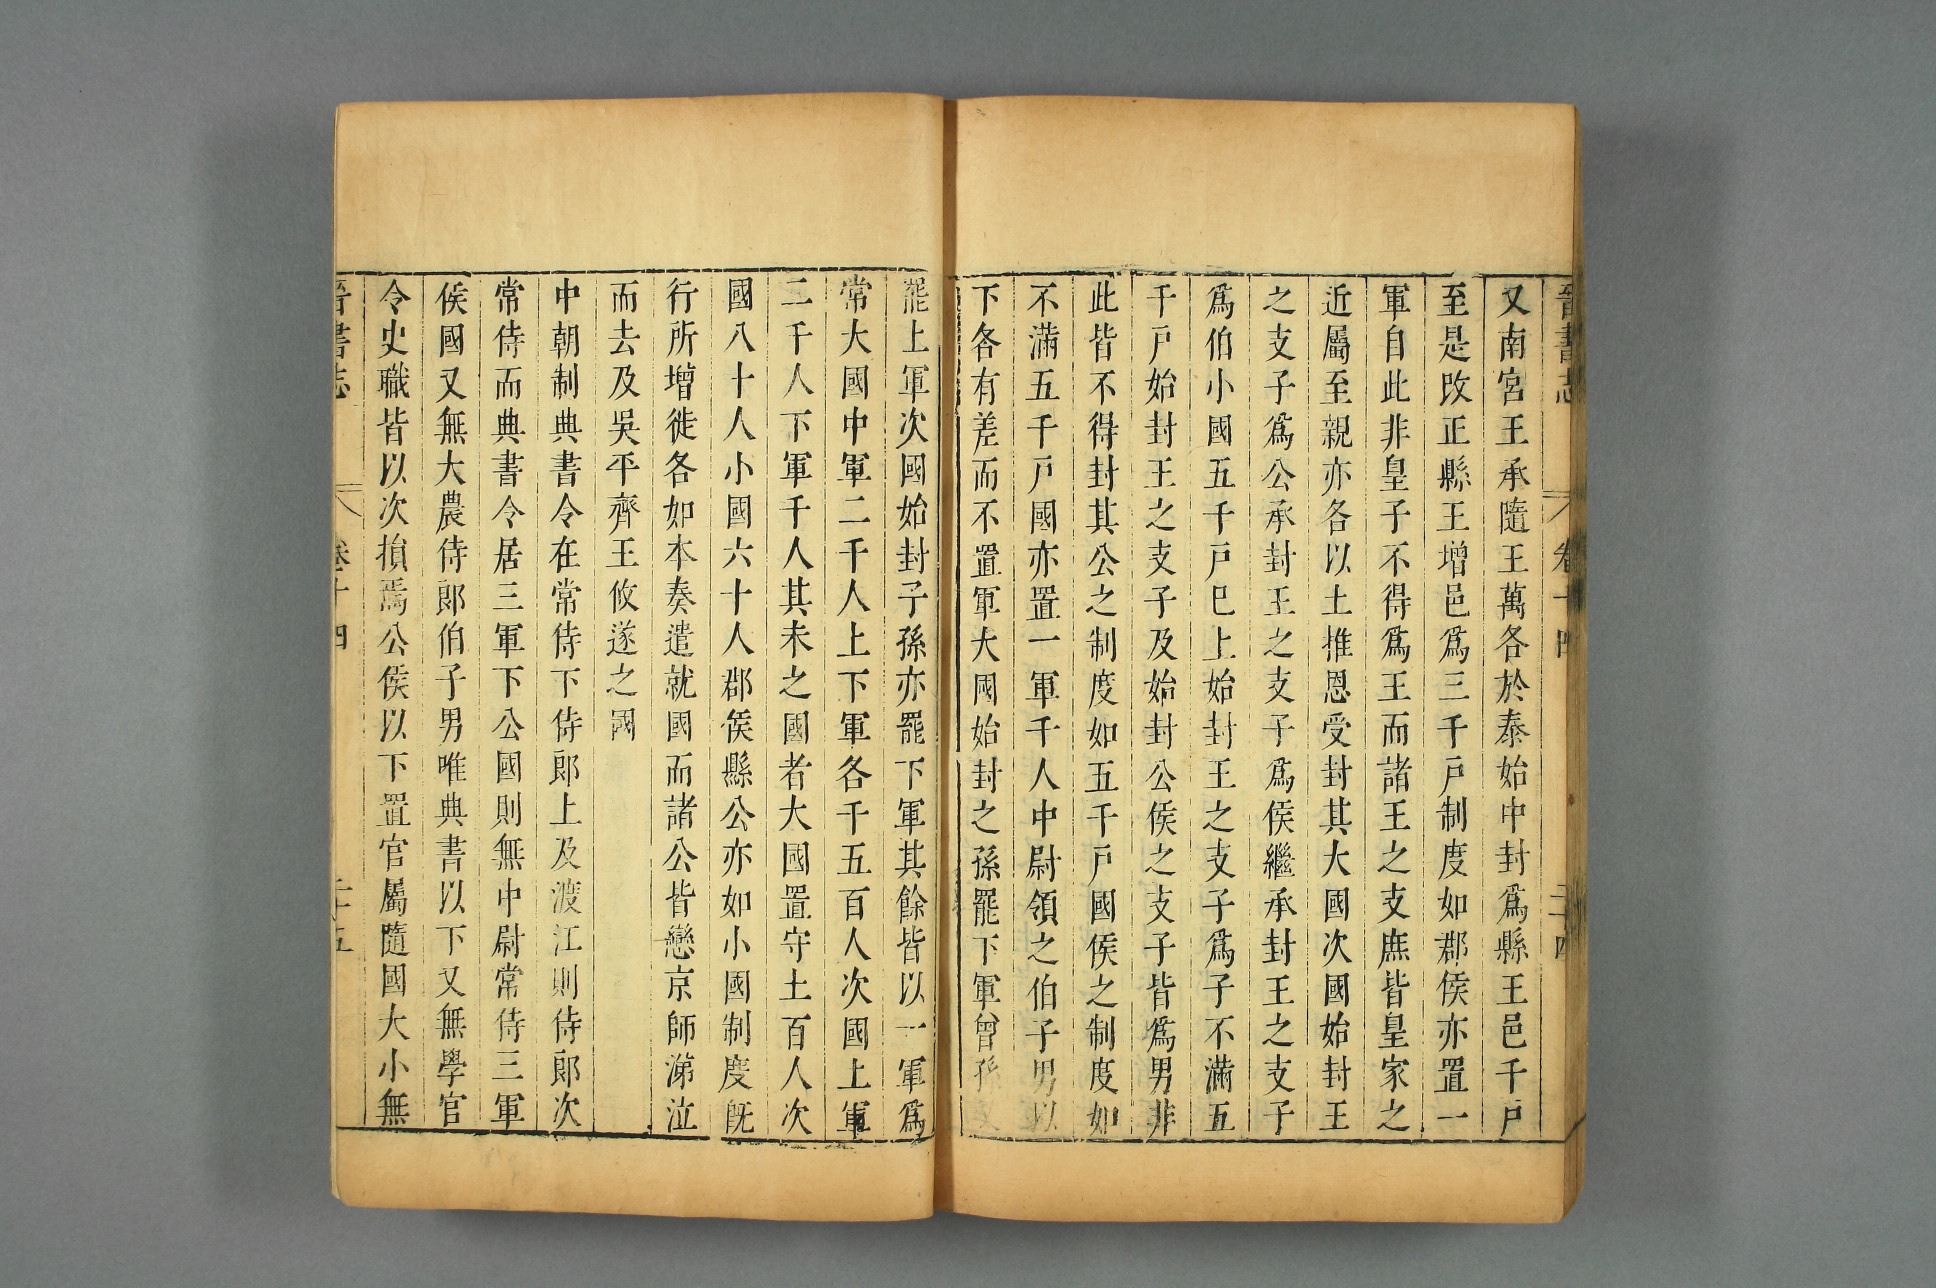 晉書志 卷十四 二十四
又南宮王承隨王萬各於泰始中封爲縣王邑千戸
至是改正縣王增邑爲三千戸制度如郡侯亦置一
軍自此非皇子不得爲王而諸王之支庶皆皇家之
近屬至親亦各以土推恩受封其大國次國始封王
之支子爲公承封王之支子爲侯繼承封王之支子
爲伯小國五千戸巳上始封王之支子爲子不滿五
千戸始封王之支子及始封公侯之支子皆爲男非
此皆不得封其公之制度如五千戸國侯之制度如
不滿五千戸國亦置一軍千人中尉領之伯子男以
下各有差而不置軍大國始封之孫罷下軍曾孫又
罷上軍次國始封子孫亦罷下軍其餘皆以一軍爲
常大國中軍二千人上下軍各千五百人次國上軍
二千人下軍千人其未之國者大國置守土百人次
國八十人小國六十人郡侯縣公亦如小國制度旣
行所增徙各如本奏遣就國而諸公皆戀京師涕泣
而去及吳平齊王攸遂之國
中朝制典書令在常侍下侍郎上及渡江則侍郎次
常侍而典書令居三軍下公國則無中尉常侍三軍
侯國又無大農侍郎伯子男唯典書以下又無學官
令史職皆以次損焉公侯以下置官屬隨國大小無
晉書志 卷十四 二十五